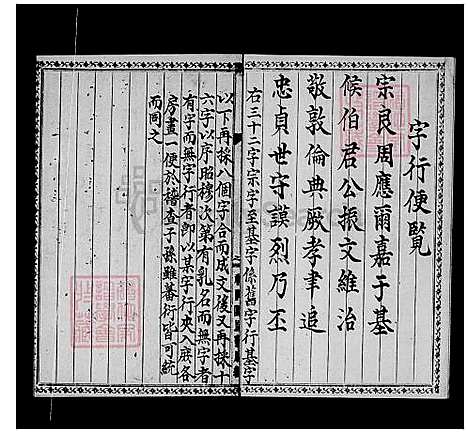 字行便覽
宗良周應爾嘉于基
候伯君公振文維治
敬敦倫典厥孝聿追
忠貞世守謨烈乃丕
右三十二字宗字至基字係舊字行基字
以下再採八個字合而成文後又再採十
六字以序昭穆次第有乳名而無字者
有字而無字行者即以某字行央入庶各
房畫一便於稽查子孫雖蕃衍皆可統
而同之